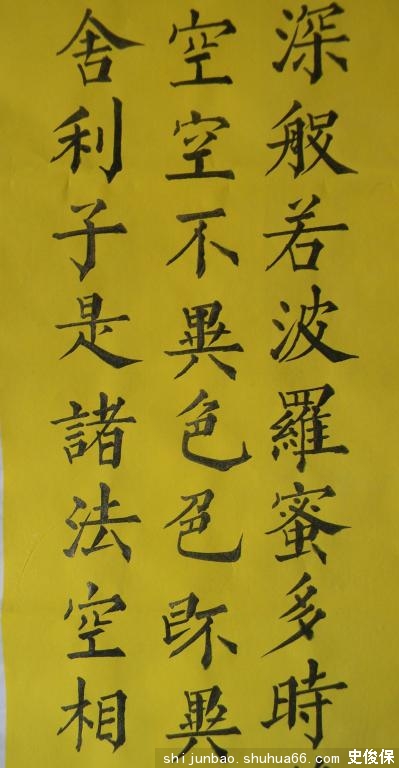 深般若波羅蜜多時
空空不異色色異
舍利子是諸法空相
shijunbao.shuhua66.com 史俊保